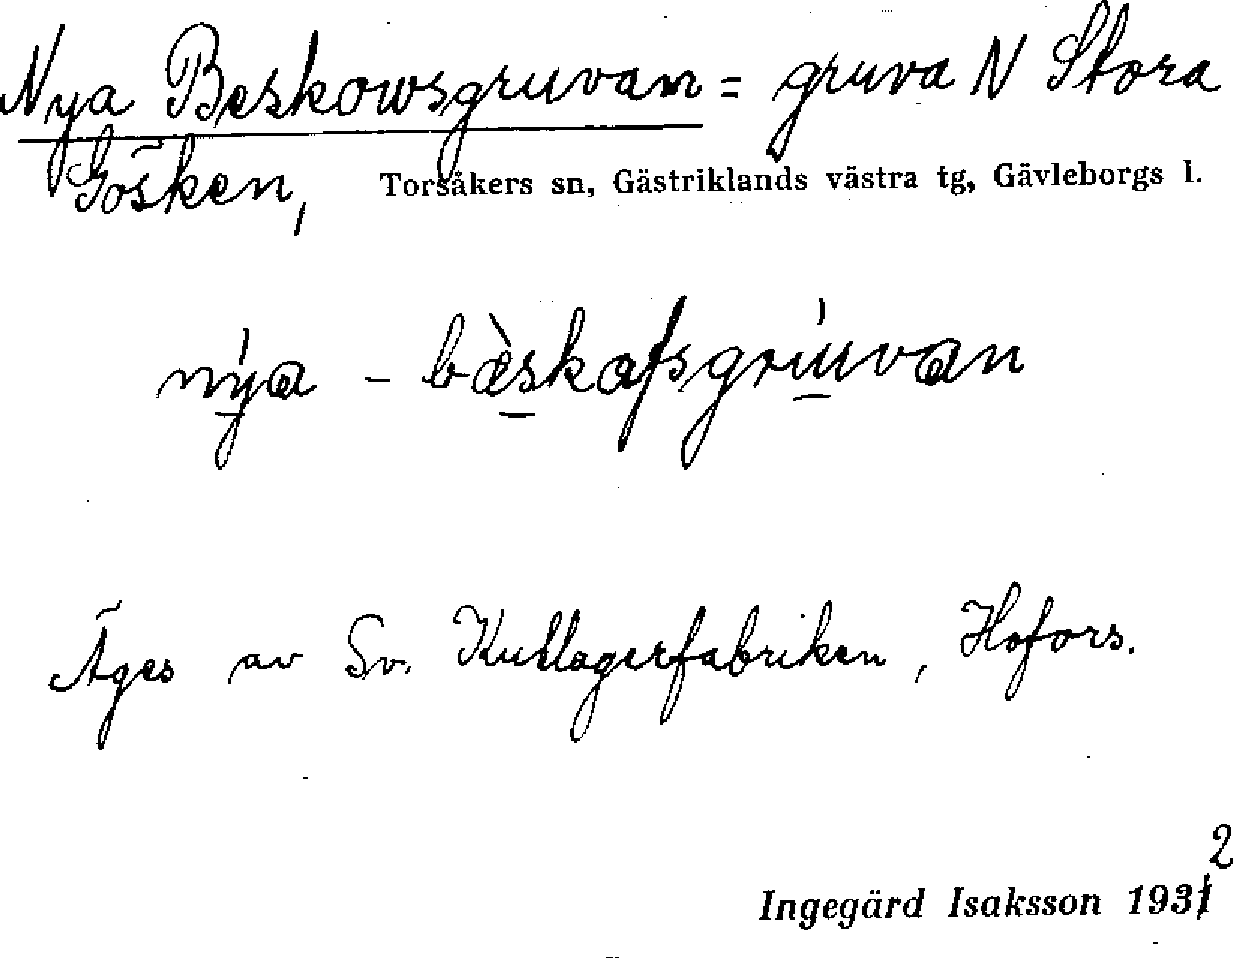 Nya Beskowsgruvan = gruva N Stora
Gösken, Torsåkers sn, Gästriklands västra tg, Gävleborgs l.
nya - bæskafsgruvan
Äges av Sv. Kullagerfabriken, Hofors.
2
Ingegärd Isaksson 1931